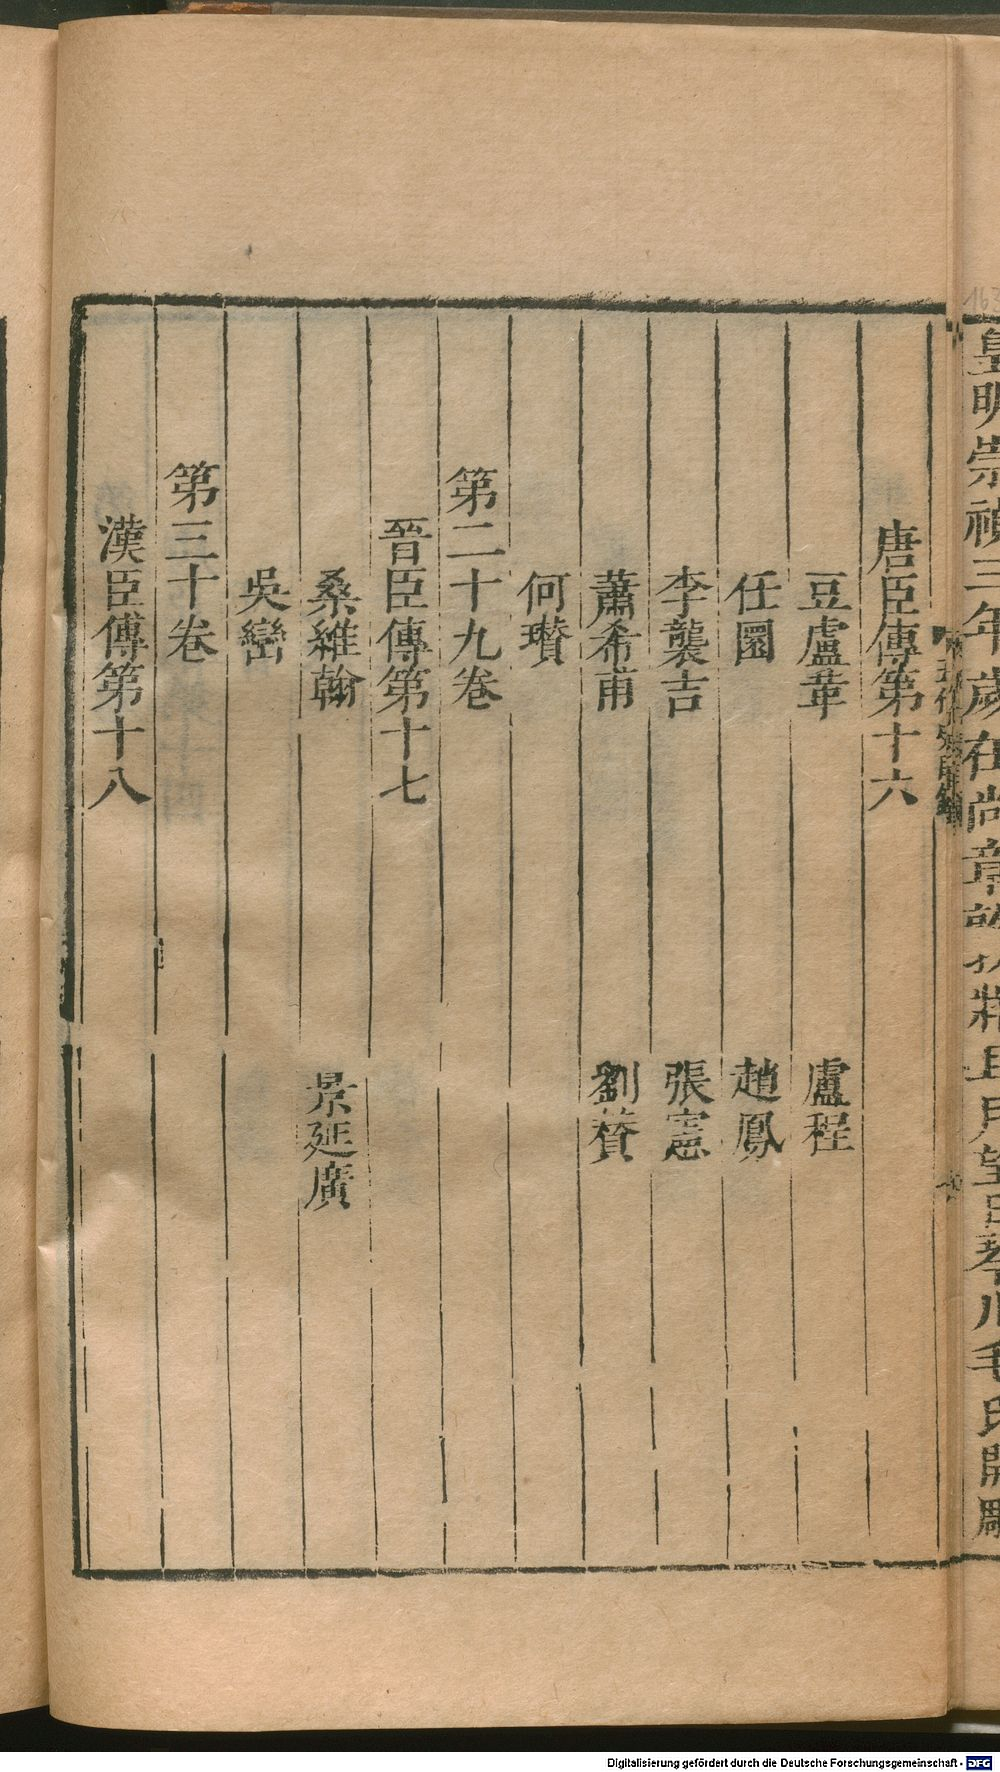 皇明崇禎三年歲在尚章
且月望日琴川毛氏開雕
唐臣傳第十六
豆盧革　盧程
任圜　趙鳳
李襲吉　張憲
蕭希甫　劉贊
何瓚
第二十九卷
晉臣傳第十七
桑維翰　景延廣
吳巒
第三十卷
漢臣傳第十八
Digitalisierung gefördert durch die Deutsche Forschungsgemeinschaft - DFG